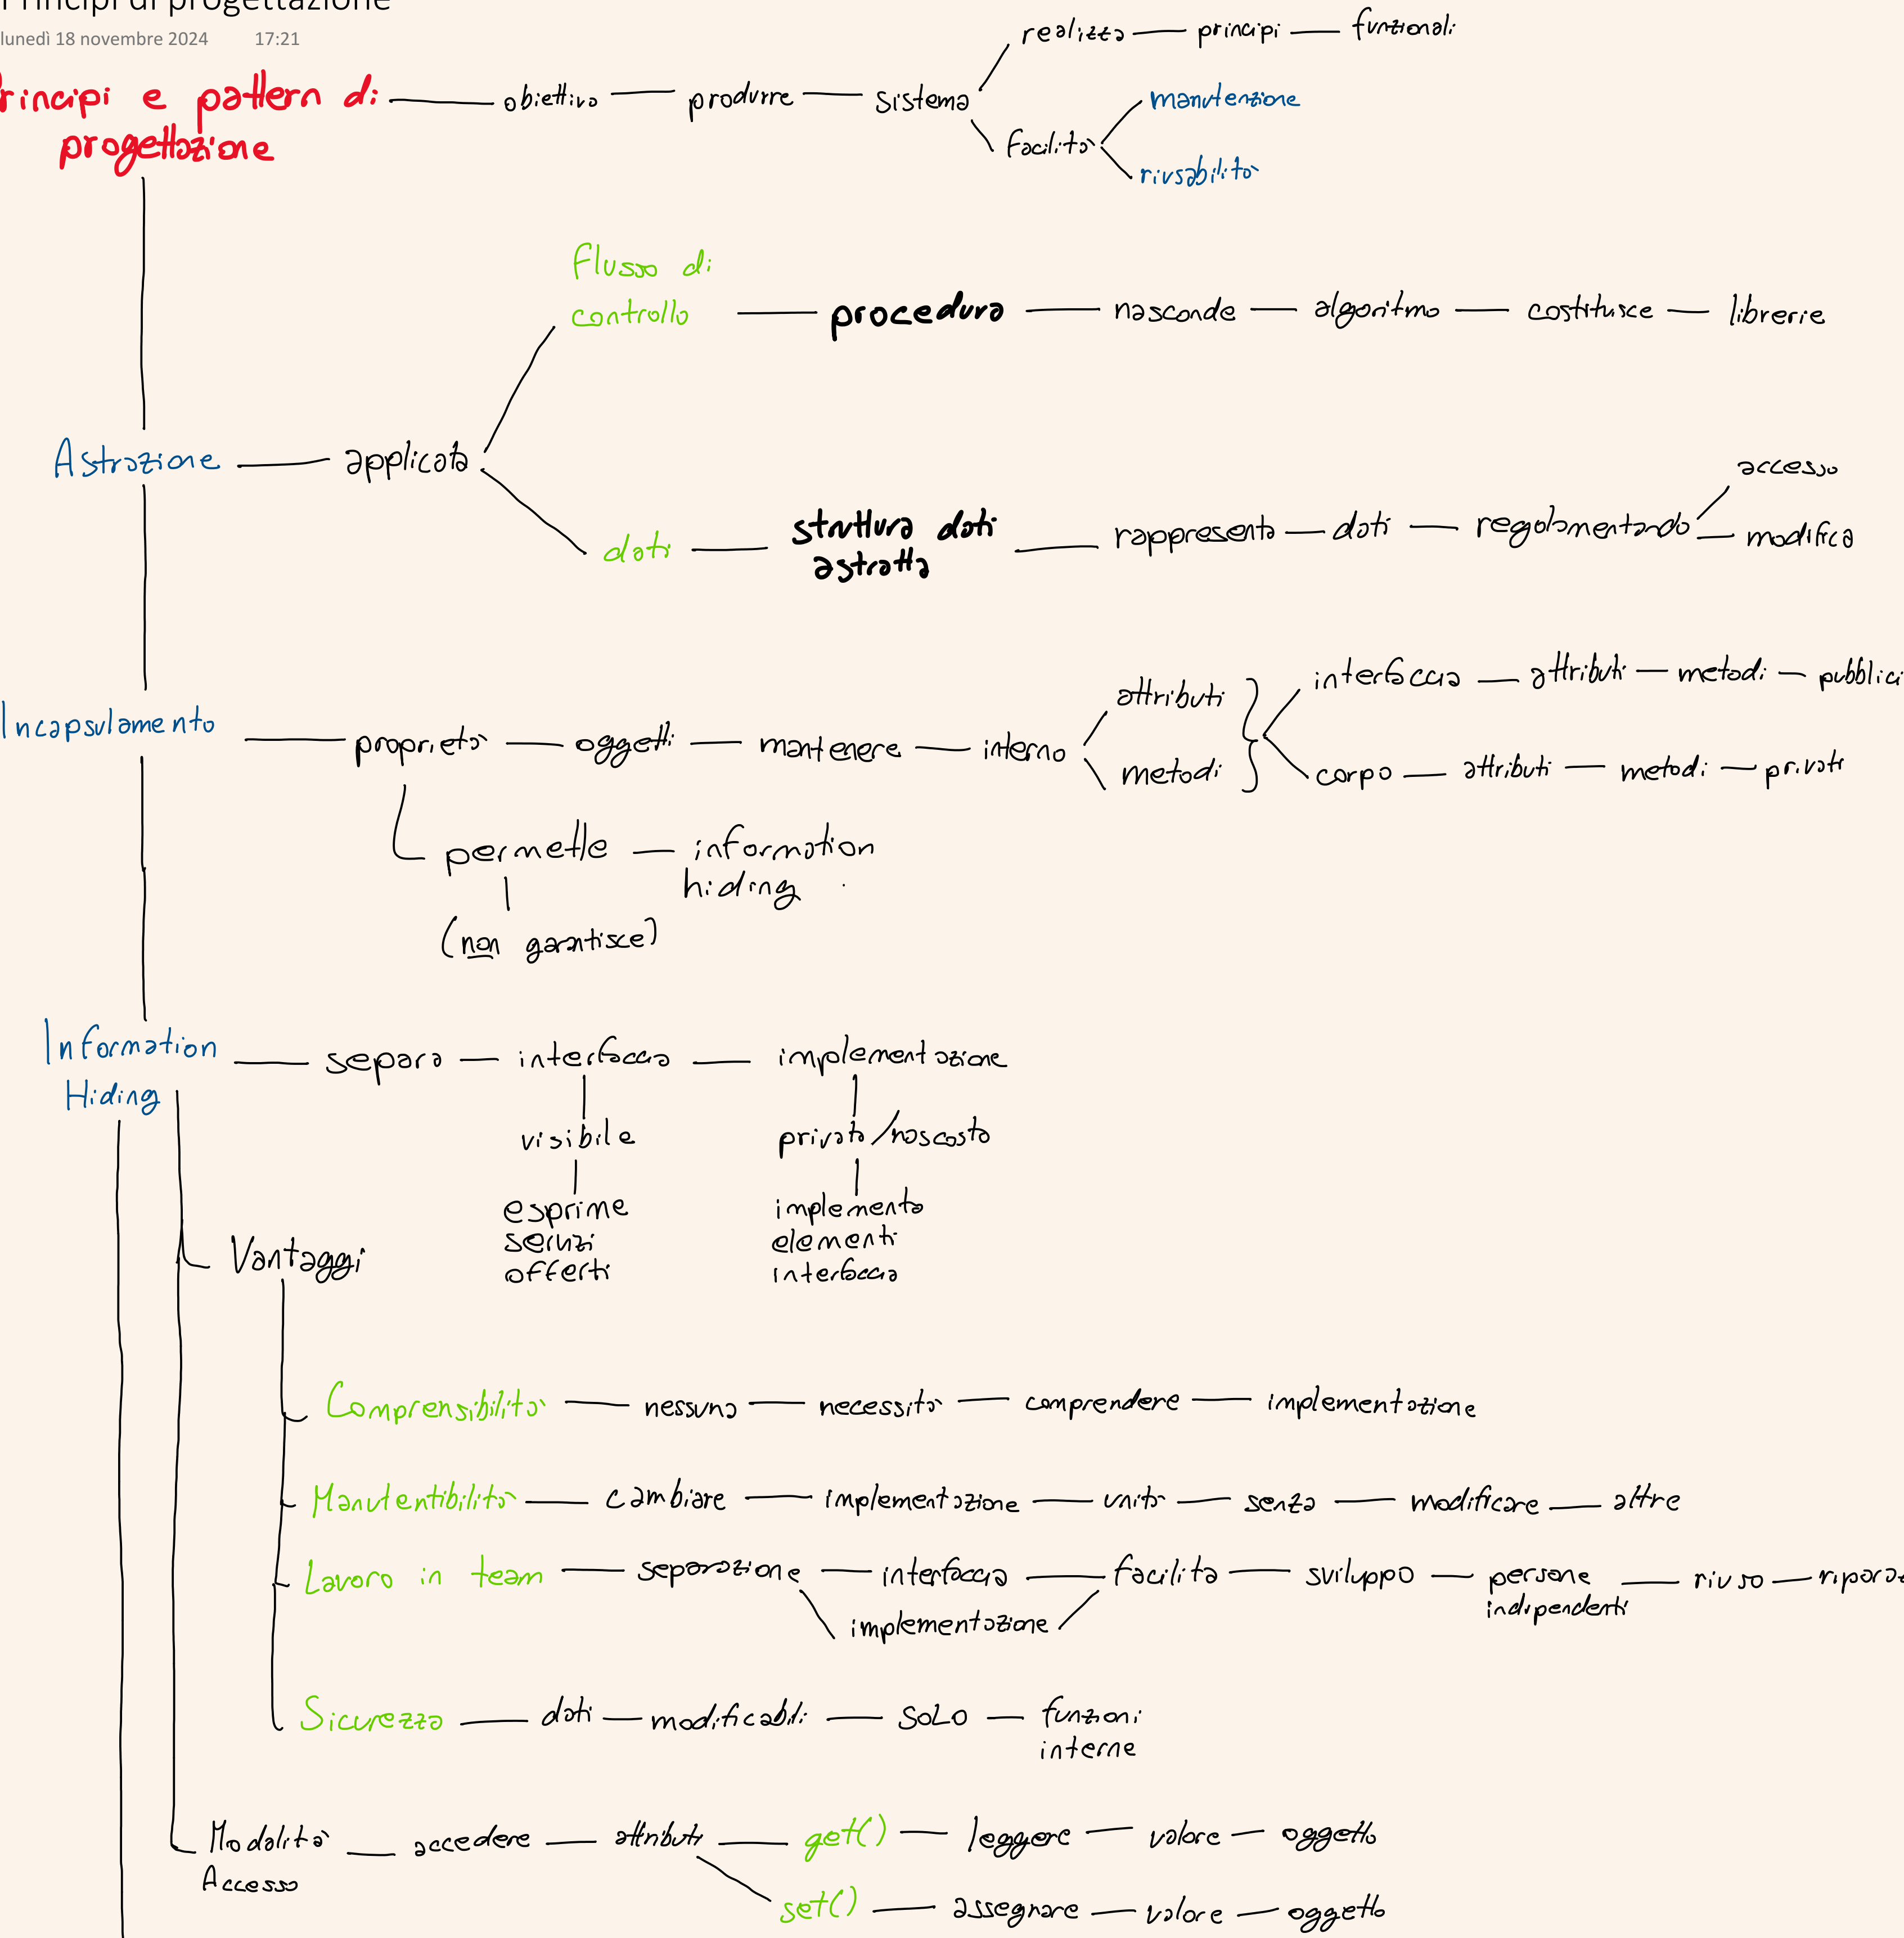 Principi di progettazione
lunedì 18 novembre 2024 17:21
rincipi e pattern di progettazione obiettivo produrre sistema
realizza principi funzionali
facilità
manutenzione
riusabilità
Astrazione applicata
flusso di controllo procedura nasconde algoritmo costituisce librerie
dati struttura dati astratta rappresenta dati regolamentando
accesso
modifica
Incapsulamento proprietà oggetti mantenere interno
attributi
metodi
interfaccia attributi metodi pubblici
corpo attributi metodi privati
permette information hiding
(non garantisce)
Information Hiding separa interfaccia implementazione
visibile privata/nascosta
esprime implementa
servizi elementi
offerti interfaccia
Vantaggi
Comprensibilità nessuna necessità comprendere implementazione
Manutentibilità cambiare implementazione unità senza modificare altre
Lavoro in team separazione interfaccia facilita sviluppo persone indipendenti riuso
implementazione
Sicurezza dati modificabili SOLO funzioni interne
Modalità Accesso accedere attributi get() leggere valore oggetto
set() assegnare valore oggetto